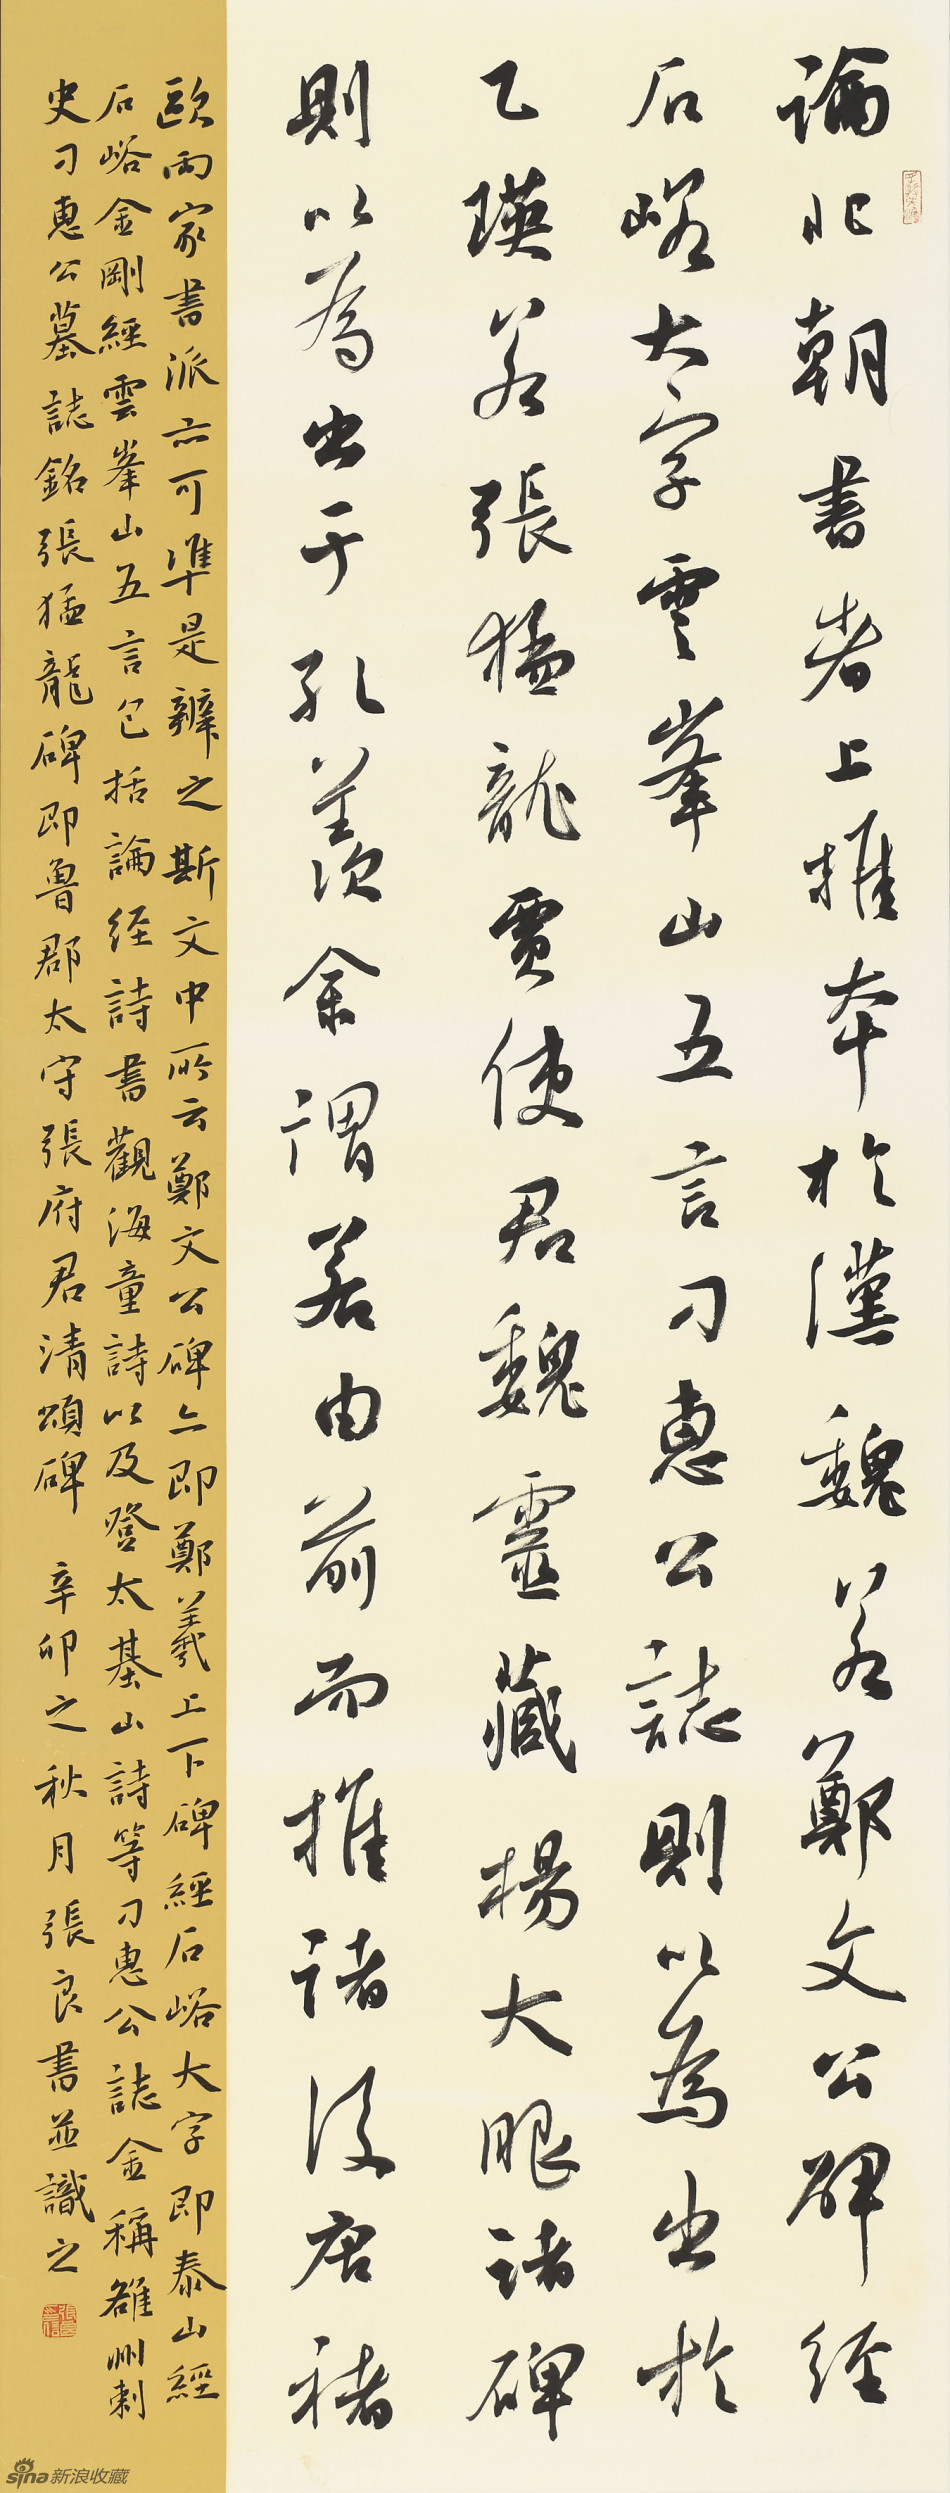 論北朝書者上推本於漢魏若鄭文公碑經
石峪大字雲峯山五言刁惠公誌則以為出於
乙瑛若張猛龍賈使君魏靈藏楊大眼諸碑
則以為出于孔羨余謂若由前而推諸後唐褚
歐兩家書派亦可準是辨之斯文中所云鄭文公碑亦即鄭羲上下碑經石峪大字即泰山經
石峪金剛經雲峯山五言包括論經詩書觀海童詩以及登太基山詩等刁惠公誌金稱雒州刺
史刁惠公墓誌銘張猛龍碑即魯郡太守張府君清頌碑 辛卯之秋月張良書並識之
sina新浪收藏